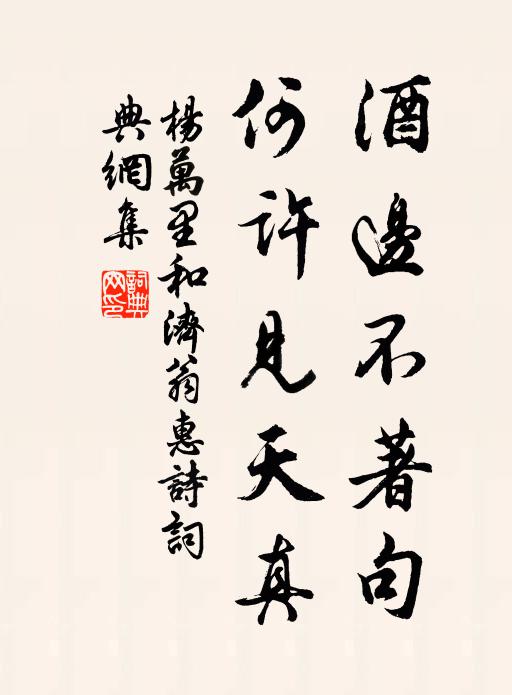 酒邊不著句
何許見天真
楊萬里和濟翁惠詩詞
典網集
詞典
網印